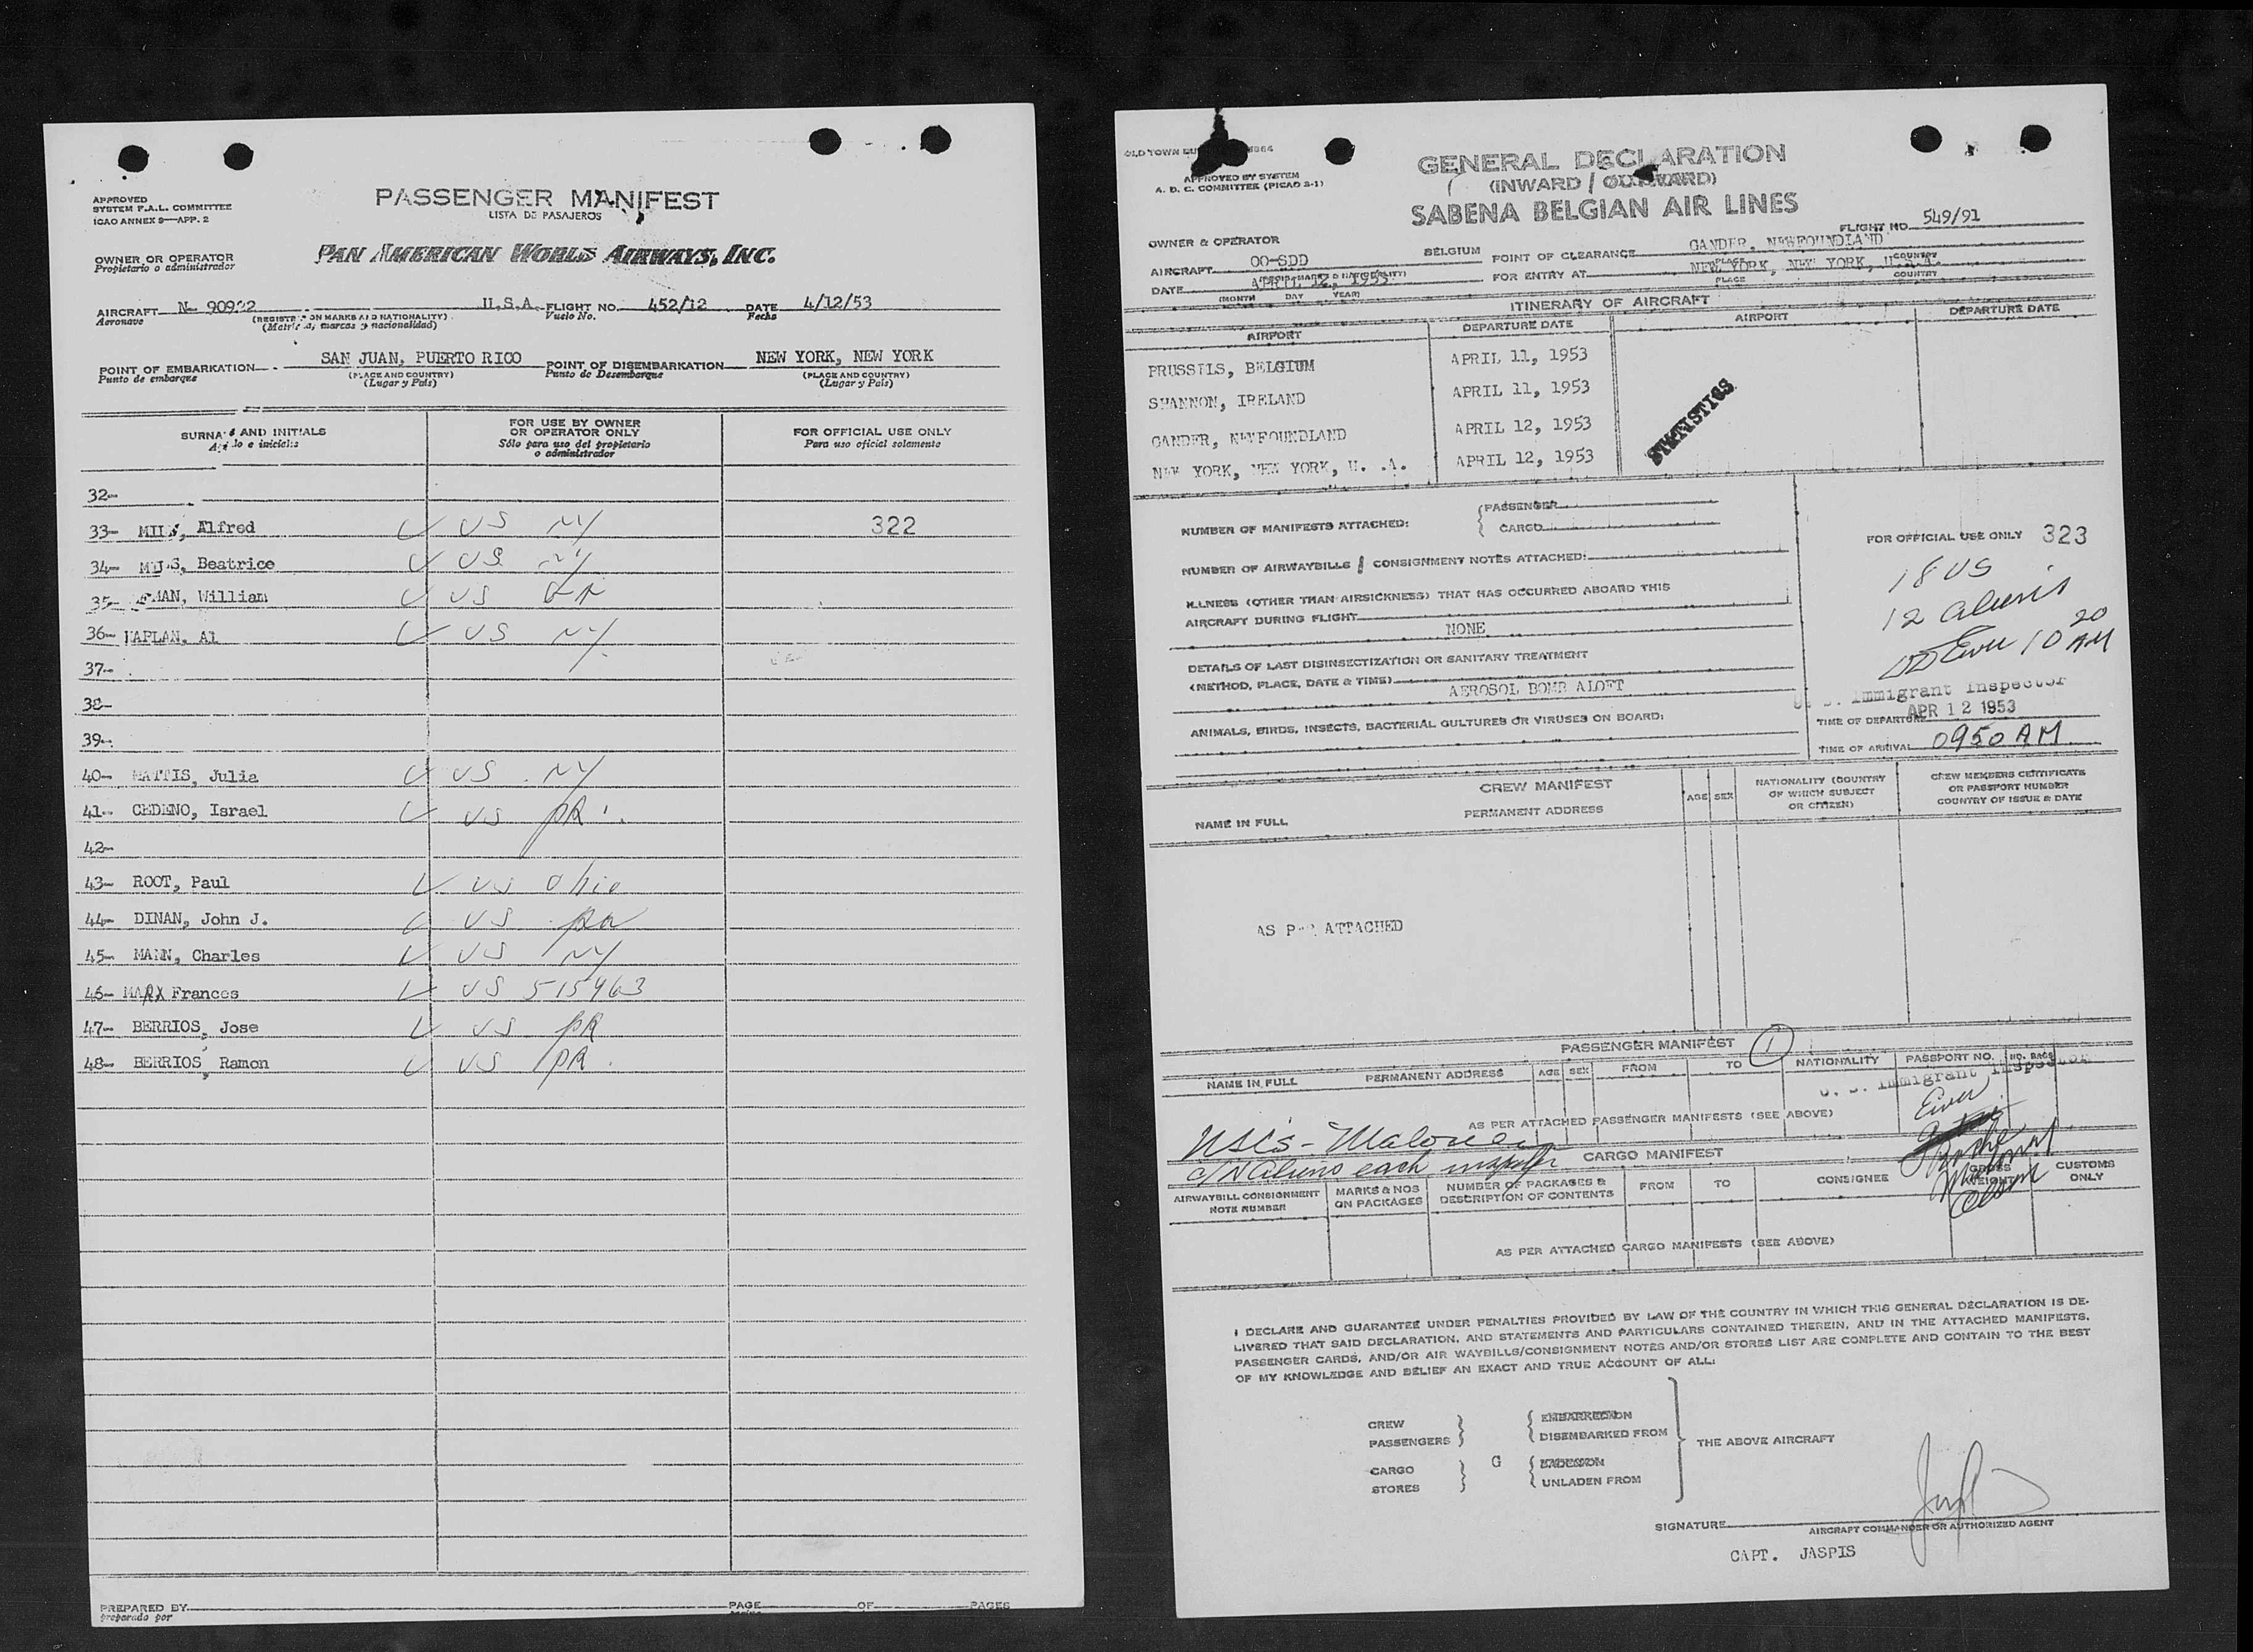 APPROVED
SYSTEM F.A.L. COMMITTEE
ICAO ANNEX 9—APP. 2
PASSENGER MANIFEST
LISTA DE PASAJEROS
OWNER OR OPERATOR
Propietario o administrador
PAN AMERICAN WORLD AIRWAYS, INC.
AIRCRAFT N- U.S.A. FLIGHT NO. 452/12 DATE 4/12/53
Aeronave (Matrícula, marcas y nacionalidad) Vuelo No. Fecha
POINT OF EMBARKATION SAN JUAN, PUERTO RICO POINT OF DISEMBARKATION NEW YORK, NEW YORK
Punto de embarque (PLACE AND COUNTRY) Punto de Desembarque (PLACE AND COUNTRY)
(Lugar y País) (Lugar y País)
AND INITIALS FOR USE BY OWNER OR OPERATOR ONLY FOR OFFICIAL USE ONLY
e iniciales Sólo para uso del propietario o administrador Para uso oficial solamente
32-
33- Alfred US NY 322
34- Beatrice US NY
35- William US
36- KAPLAN, Al US NY
37-
38-
39-
40- MATTIS, Julia US NY
41- CEDENO, Israel US PR
42-
43- ROOT, Paul US Ohio
44- DINAN, John J. US
45- MANN, Charles US NY
46- MARX Frances US 515963
47- BERRIOS, Jose US PR
48- BERRIOS, Ramon US PR
PREPARED BY PAGE OF PAGES
preparado por
OLD TOWN
APPROVED BY SYSTEM
A. D. C. COMMITTEE (PICAO 3-1)
GENERAL DECLARATION
(INWARD / OUTWARD)
SABENA BELGIAN AIR LINES
FLIGHT NO. 549/91
OWNER & OPERATOR BELGIUM POINT OF CLEARANCE GANDER, NEWFOUNDLAND
AIRCRAFT OO-SDD FOR ENTRY AT NEW YORK, NEW YORK, U.S.A.
PLACE COUNTRY
DATE APRIL 12, 1953
(MONTH DAY YEAR)
ITINERARY OF AIRCRAFT
AIRPORT DEPARTURE DATE AIRPORT DEPARTURE DATE
BRUSSELS, BELGIUM APRIL 11, 1953
SHANNON, IRELAND APRIL 11, 1953
GANDER, NEWFOUNDLAND APRIL 12, 1953
NEW YORK, NEW YORK, U. .A. APRIL 12, 1953
STATISTICS
NUMBER OF MANIFESTS ATTACHED: PASSENGER
CARGO
NUMBER OF AIRWAYBILLS / CONSIGNMENT NOTES ATTACHED:
FOR OFFICIAL USE ONLY 323
18 US
12 aliens
10 20 AM
ILLNESS (OTHER THAN AIRSICKNESS) THAT HAS OCCURRED ABOARD THIS
AIRCRAFT DURING FLIGHT
NONE
DETAILS OF LAST DISINSECTIZATION OR SANITARY TREATMENT
(METHOD, PLACE, DATE & TIME)
AEROSOL BOMB ALOFT
Immigrant Inspector
APR 12 1953
TIME OF DEPARTURE
ANIMALS, BIRDS, INSECTS, BACTERIAL CULTURES OR VIRUSES ON BOARD:
TIME OF ARRIVAL 0950 AM
CREW MANIFEST
NAME IN FULL PERMANENT ADDRESS AGE SEX NATIONALITY (COUNTRY OF WHICH SUBJECT OR CITIZEN) CREW MEMBERS CERTIFICATE OR PASSPORT NUMBER COUNTRY OF ISSUE & DATE
AS PER ATTACHED
PASSENGER MANIFEST 1
NAME IN FULL PERMANENT ADDRESS AGE SEX FROM TO NATIONALITY PASSPORT NO. NO. BAGS
U. S. Immigrant Inspector
AS PER ATTACHED PASSENGER MANIFESTS (SEE ABOVE)
USC's - Malone
aliens each inspector
CARGO MANIFEST
AIRWAYBILL CONSIGNMENT NOTE NUMBER MARKS & NOS ON PACKAGES NUMBER OF PACKAGES & DESCRIPTION OF CONTENTS FROM TO CONSIGNEE GROSS WEIGHT CUSTOMS ONLY
AS PER ATTACHED CARGO MANIFESTS (SEE ABOVE)
I DECLARE AND GUARANTEE UNDER PENALTIES PROVIDED BY LAW OF THE COUNTRY IN WHICH THIS GENERAL DECLARATION IS DE-
LIVERED THAT SAID DECLARATION, AND STATEMENTS AND PARTICULARS CONTAINED THEREIN, AND IN THE ATTACHED MANIFESTS,
PASSENGER CARDS, AND/OR AIR WAYBILLS/CONSIGNMENT NOTES AND/OR STORES LIST ARE COMPLETE AND CONTAIN TO THE BEST
OF MY KNOWLEDGE AND BELIEF AN EXACT AND TRUE ACCOUNT OF ALL:
CREW
PASSENGERS DISEMBARKED FROM THE ABOVE AIRCRAFT
CARGO
STORES UNLADEN FROM
SIGNATURE
AIRCRAFT COMMANDER OR AUTHORIZED AGENT
CAPT. JASPIS